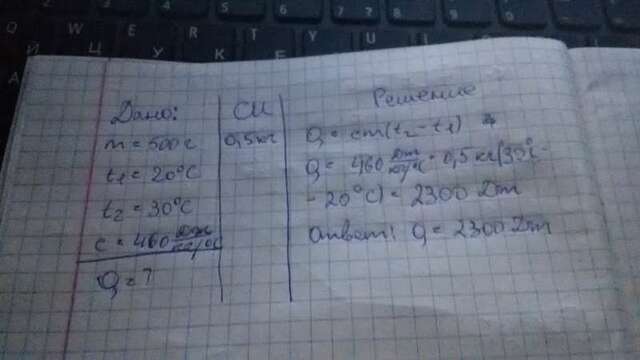 Дано:
m = 500 г
t1 = 20°C
t2 = 30°C
c = 460 Дж/кг°C
Q = ?
СИ
0,5 кг
Решение
Q = cm(t2 - t1)
Q = 460 Дж/кг°C · 0,5 кг (30°C -
- 20°C) = 2300 Дж
Ответ: Q = 2300 Дж